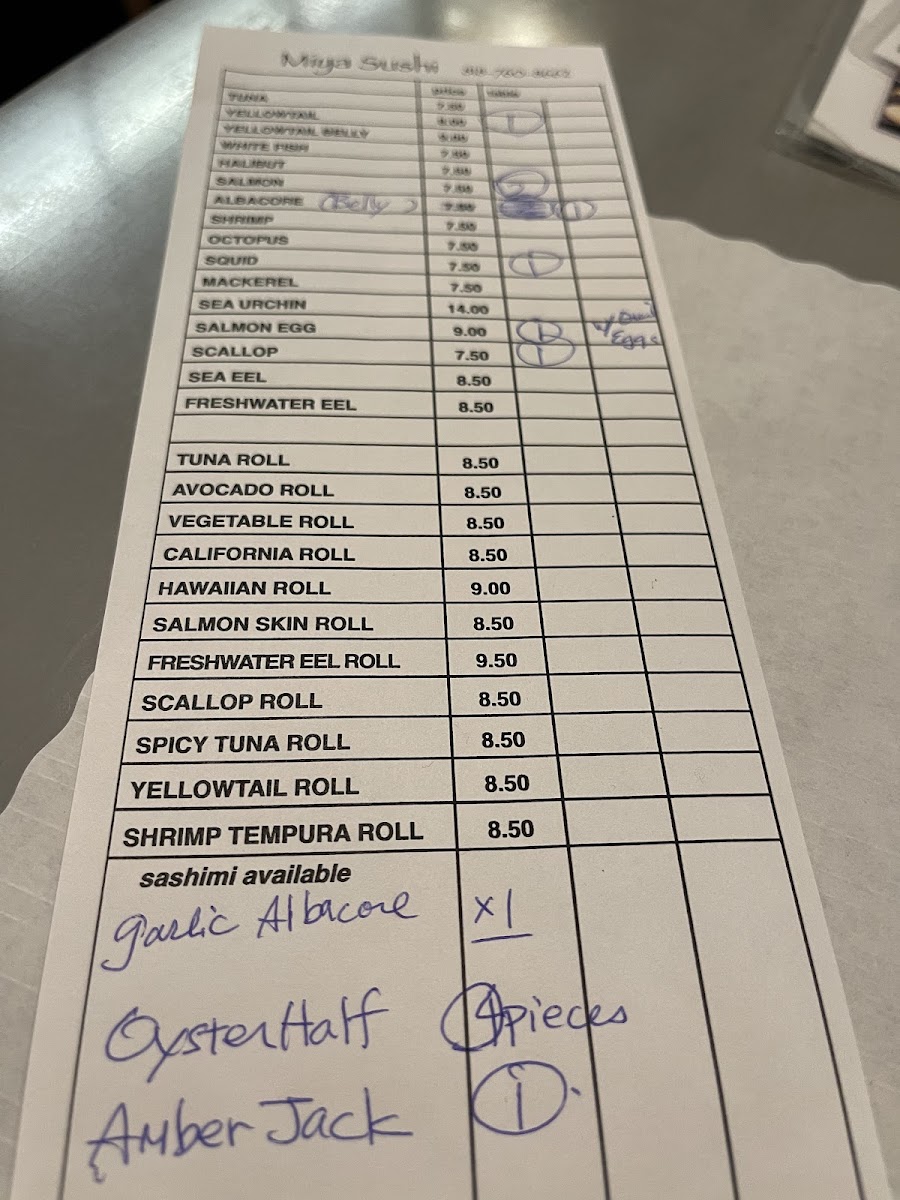 Miya Sushi
TUNA
YELLOWTAIL 1
YELLOWTAIL BELLY
WHITE FISH
HALIBUT
SALMON 2
ALBACORE (Belly) 1
SHRIMP 7.50
OCTOPUS 7.50
SQUID 7.50 1
MACKEREL 7.50
SEA URCHIN 14.00
SALMON EGG 9.00 1 w/ Quail Eggs
SCALLOP 7.50 1
SEA EEL 8.50
FRESHWATER EEL 8.50
TUNA ROLL 8.50
AVOCADO ROLL 8.50
VEGETABLE ROLL 8.50
CALIFORNIA ROLL 8.50
HAWAIIAN ROLL 9.00
SALMON SKIN ROLL 8.50
FRESHWATER EEL ROLL 9.50
SCALLOP ROLL 8.50
SPICY TUNA ROLL 8.50
YELLOWTAIL ROLL 8.50
SHRIMP TEMPURA ROLL 8.50
sashimi available
garlic Albacore x1
Oyster Half 4 pieces
Amber Jack 1